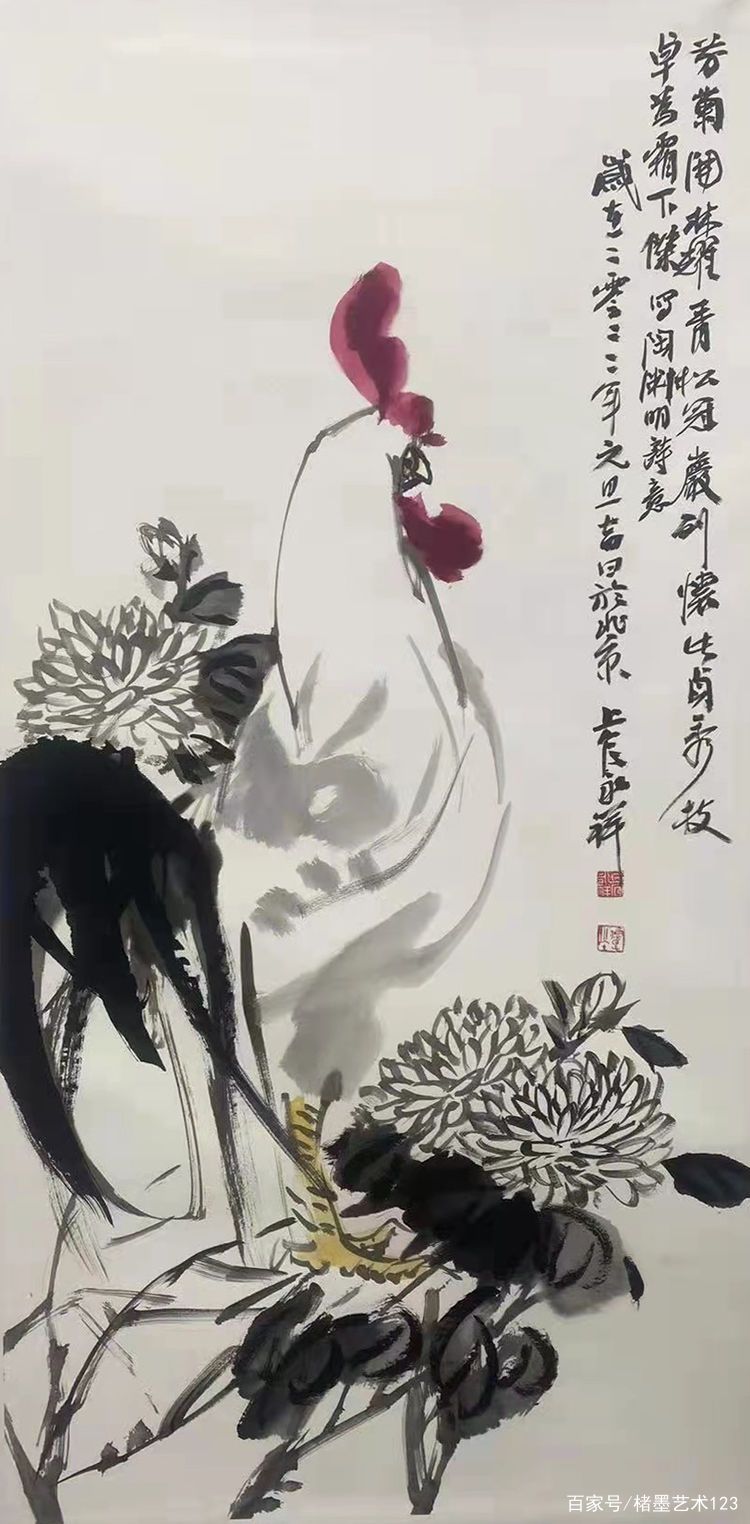 芳菊開林耀青松冠巖列懷此貞秀
卓為霜下傑写陶淵明詩意
歲在二零二二年元旦吉日於北京 永祥
百家号/楮墨艺术123